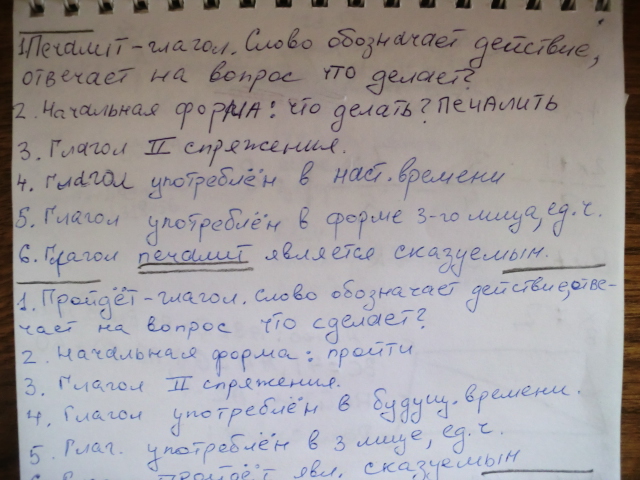 1. Печалит - глагол. Слово обозначает действие,
отвечает на вопрос что делает?
2. Начальная форма: что делать? Печалить
3. Глагол II спряжения.
4. Глагол употреблён в наст. времени
5. Глагол употреблён в форме 3-го лица, ед. ч.
6. Глагол печалит является сказуемын.
1. Пройдёт - глагол. Слово обозначает действие, отве-
чает на вопрос что сделает?
2. Начальная форма: пройти
3. Глагол II спряжения.
4. Глагол употреблён в будущ. времени.
5. Глаг. употреблён в 3 лице, ед. ч.
пройдёт явл. сказуемын